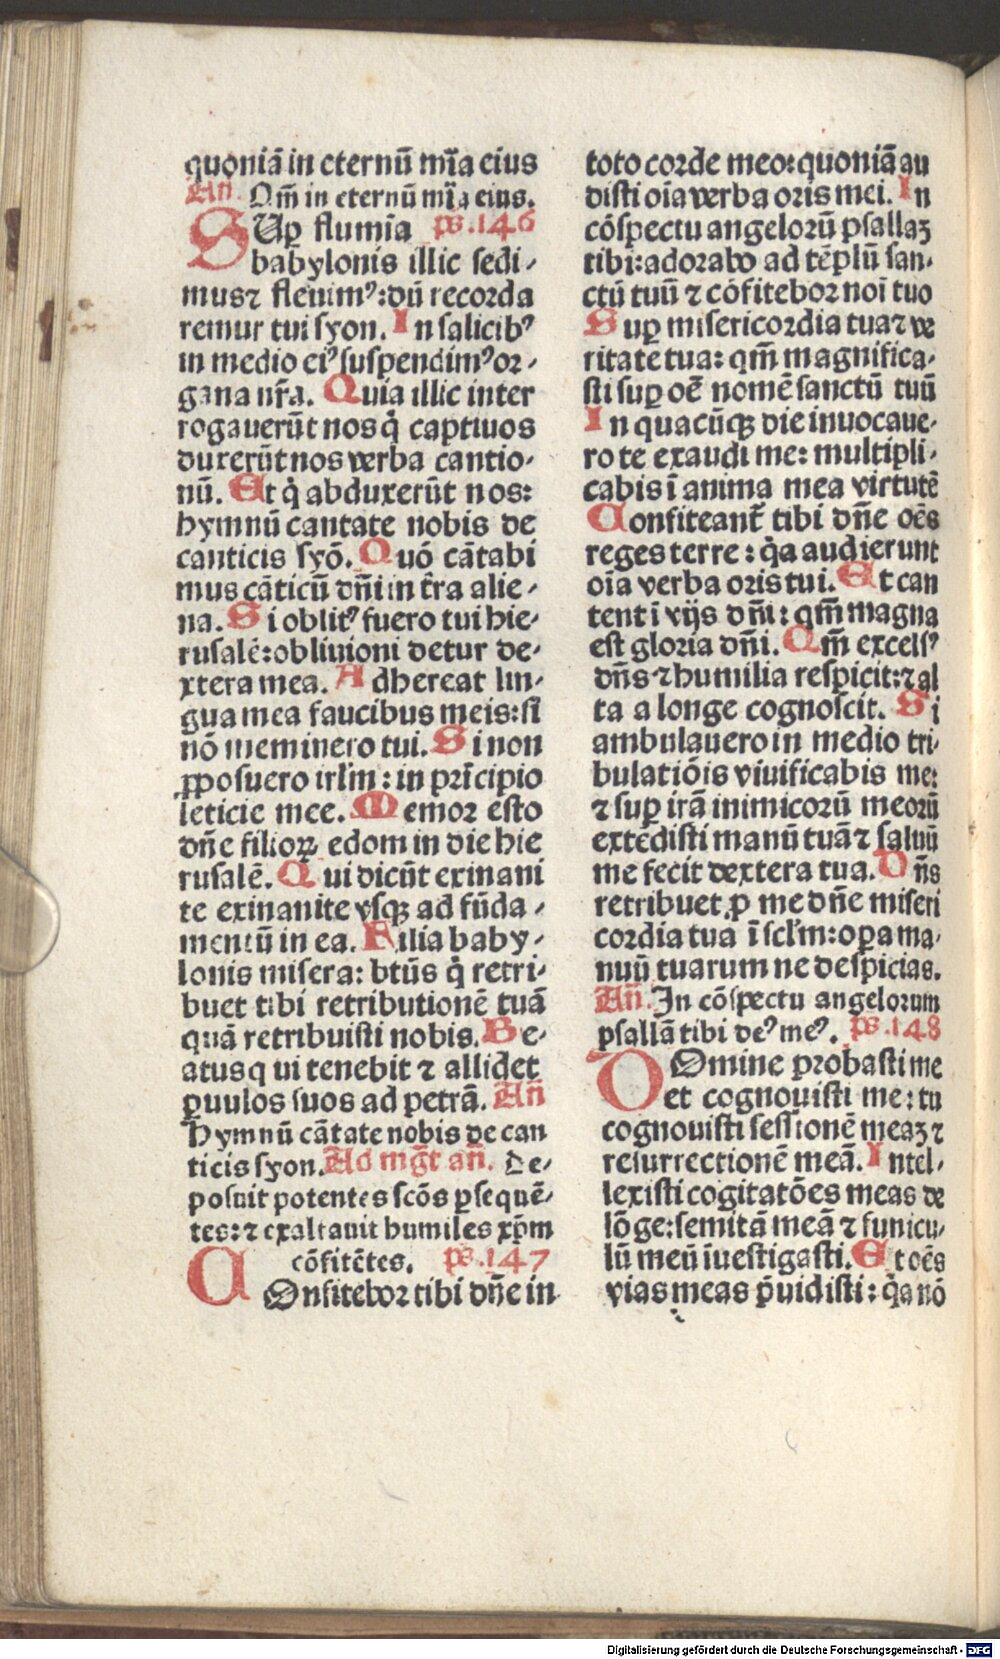 quoniā in eternū mīa eius
Añ. Qm̄ in eternū mīa eius.
SUꝑ flumīa ps.146
babylonis illic sedi-
mus⁊ fleuimꝰ:dū recorda
remur tui syon. In salicibꝰ
in medio eiꝰ suspendimꝰ or-
gana nr̄a. Quia illic inter
rogauerūt nos q̇ captiuos
duxerūt nos verba cantio-
nū. Et q̇ abduxerūt nos:
hymnū cantate nobis de
canticis syō. Quō cātabi
mus cāticū dn̄i in t̄ra alie-
na. Si oblitꝰ fuero tui hie-
rusalē:obliuioni detur de-
xtera mea. Adhereat lin-
gua mea faucibus meis:si
nō meminero tui. Si non
ꝓposuero irl̄m: in prīcipio
leticie mee. Memor esto
dn̄e filioꝝ edom in die hie
rusalē. Qui dicūt exinani
te exinanite vsqꝫ ad fūda-
mentū in ea. Filia baby-
lonis misera: btūs q̇ retri-
buet tibi retributionē tuā
quā retribuisti nobis. Be-
atus qui tenebit ⁊ allidet
ꝑuulos suos ad petrā. Añ
Hymnū cātate nobis de can
ticis syon. Ad mg̅t an̄. De-
posuit potentes scōs ꝑsequē-
tes:⁊ exaltauit humiles xp̄m
cōfitētes. ps.147
COnfitebor tibi dn̄e in
toto corde meo:quoniā au
disti oīa verba oris mei. In
cōspectu angelorū psallaꝫ
tibi:adorabo ad tēplū san-
ctū tuū ⁊ cōfitebor noī tuo
Suꝑ misericordia tua⁊ ve
ritate tua: qm̄ magnifica-
sti suꝑ oē nomē sanctū tuū
In quacūqꝫ die inuocaue-
ro te exaudi me: multipli-
cabis ī anima mea virtutē
Confiteant̄ tibi dn̄e oēs
reges terre: q̇a audierunt
oīa verba oris tui. Et can
tent ī vijs dn̄i: qm̄ magna
est gloria dn̄i. Qm̄ excelsꝰ
dn̄s ⁊ humilia respicit:⁊ al
ta a longe cognoscit. Si
ambulauero in medio tri-
bulatiōis viuificabis me:
⁊ suꝑ irā inimicorū meorū
extēdisti manū tuā⁊ saluū
me fecit dextera tua. Dn̄s
retribuet ꝓ me dn̄e miseri
cordia tua ī scl̄m:oꝑa ma-
nuū tuarum ne despicias.
Añ. In cōspectu angelorum
psallā tibi deꝰ meꝰ. ps.148
DOmine probasti me
et cognouisti me: tu
cognouisti sessionē meaꝫ ⁊
resurrectionē meā. Intel-
lexisti cogitatōes meas de
lōge:semitā meā ⁊ funicu-
lū meū īuestigasti. Et oēs
vias meas p̄uidisti: q̇a nō
Digitalisierung gefördert durch die Deutsche Forschungsgemeinschaft - DFG